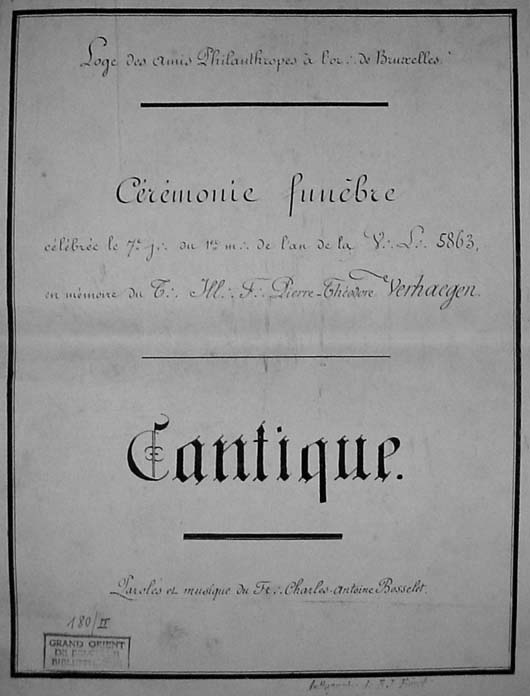 Loge des Amis Philanthropes à l'or∴ de Bruxelles.
Cérémonie funèbre
célébrée le 7e j∴ du 1er m∴ de l'an de la V∴ L∴ 5863,
en mémoire du T∴ Ill∴ F∴ Pierre-Théodore Verhaegen.
Cantique.
Paroles et musique du Fr∴ Charles-Antoine Bosselet.
180/II
GRAND ORIENT